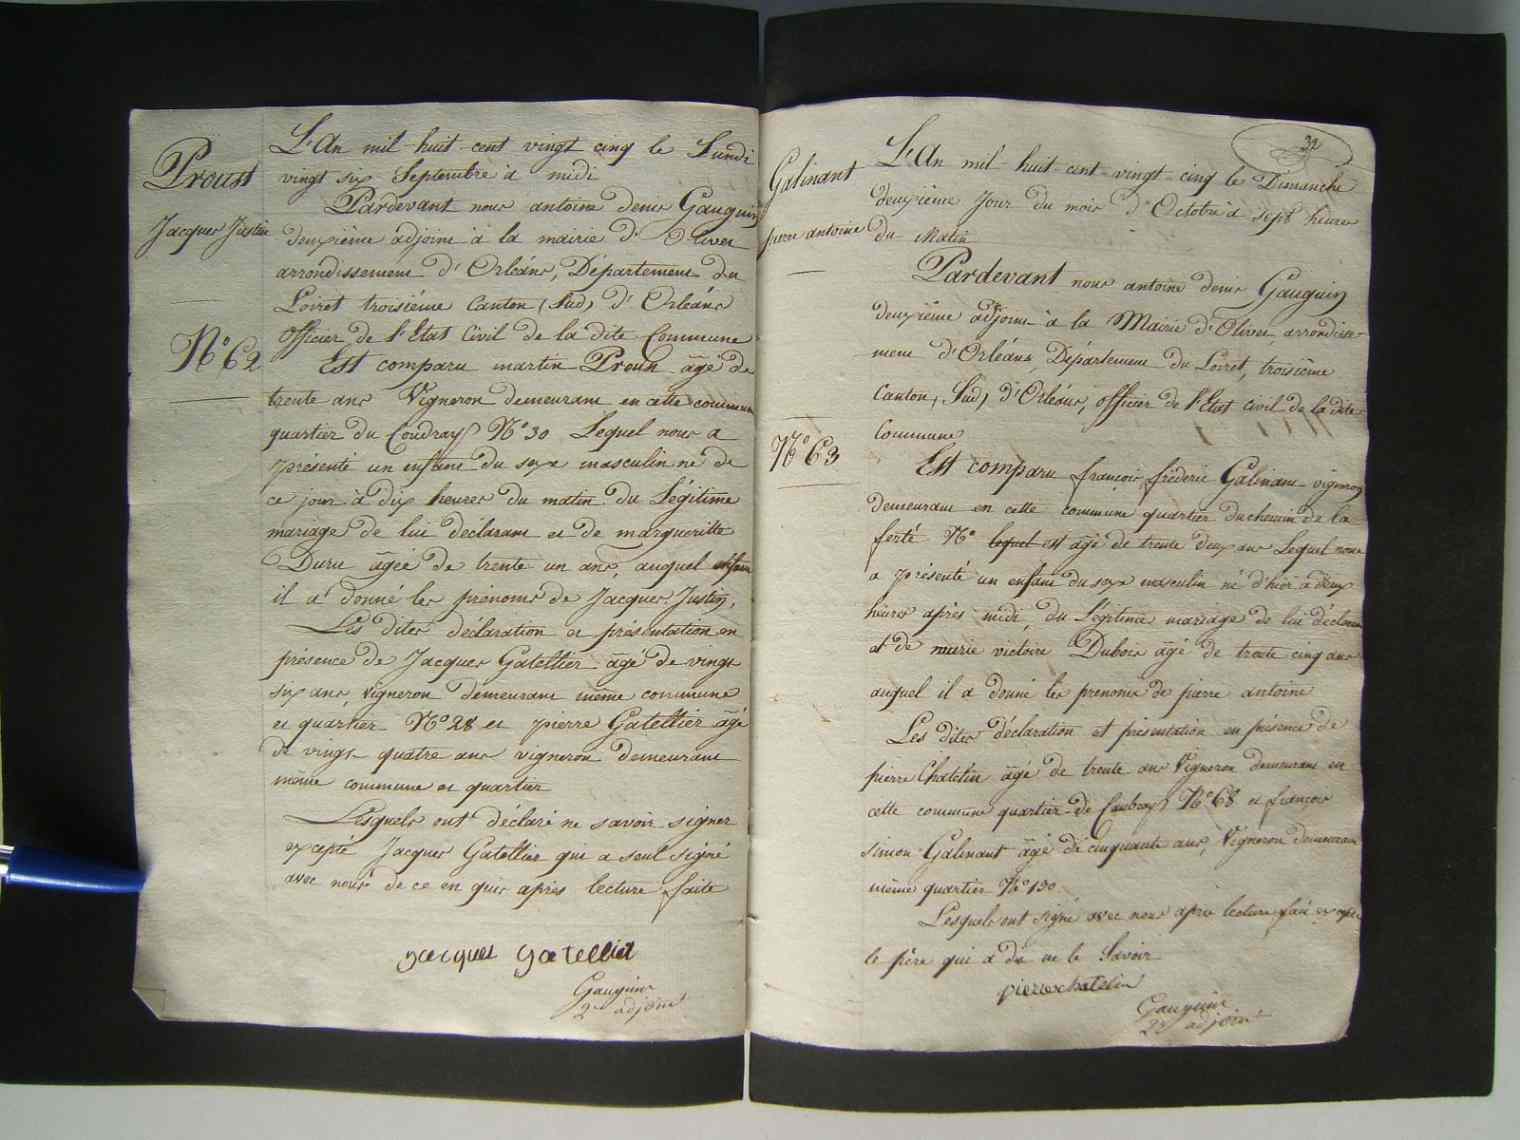 Proust
Jacques Justin
N° 62
L'An mil huit cent vingt cinq le Lundi
vingt six Septembre à midi
Pardevant nous antoine denis Gauguin
deuxième adjoint à la mairie d'Olivet
arrondissement d'Orléans, Département du
Loiret troisième Canton (Sud) d'Orléans
officier de l'Etat Civil de la dite Commune
Est comparu martin Proust âgé de
trente ans Vigneron demeurant en cette commune
quartier du Coudray N° 30 Lequel nous a
présenté un enfant du sexe masculin né de
ce jour à dix heures du matin du Légitime
mariage de lui déclarant et de margueritte
Duru âgée de trente un ans, auquel enfant
il a donné les prénoms de Jacques Justin,
Les dites déclaration et présentation en
présence de Jacques Gatellier âgé de vingt
six ans, vigneron demeurant même commune
et quartier N° 28 et pierre Gatellier âgé
de vingt quatre ans vigneron demeurant
même commune et quartier
Lesquels ont déclaré ne savoir signer
excepté Jacques Gatellier qui a seul signé
avec nous de ce en quis après lecture faite
jacques gatellier
Gauguin
2e adjoint
32
Galinant
pierre antoine
N° 63
L'An mil huit cent vingt cinq le Dimanche
deuxième Jour du mois d'Octobre à sept heures
du Matin
Pardevant nous antoine denis Gauguin
deuxième adjoint à la Mairie d'Olivet, arrondisse-
ment d'Orléans, Département du Loiret, troisième
Canton (Sud) d'Orléans, officier de l'Etat civil de la dite
Commune
Est comparu françois fréderic Galinant vigneron
demeurant en cette commune quartier du chemin de la
ferté N° lequel est âgé de trente deux ans Lequel nous
a présenté un enfant du sexe masculin né d'hier à deux
heures après midi, du Légitime mariage de lui déclarant
et de marie victoire Dubois âgé de trente cinq ans
auquel il a donné les prénoms de pierre antoine
Les dites déclaration et présentation en présence de
pierre Chatelin âgé de trente ans Vigneron demeurant en
cette commune quartier de N° 68 et françois
simon Galinant âgé de cinquante ans, Vigneron demeurant
même quartier N° 130
Lesquels ont signé avec nous après lecture faite excepté
le père qui a dit ne le Savoir
pierre chatelin
Gauguin
2e adjoint